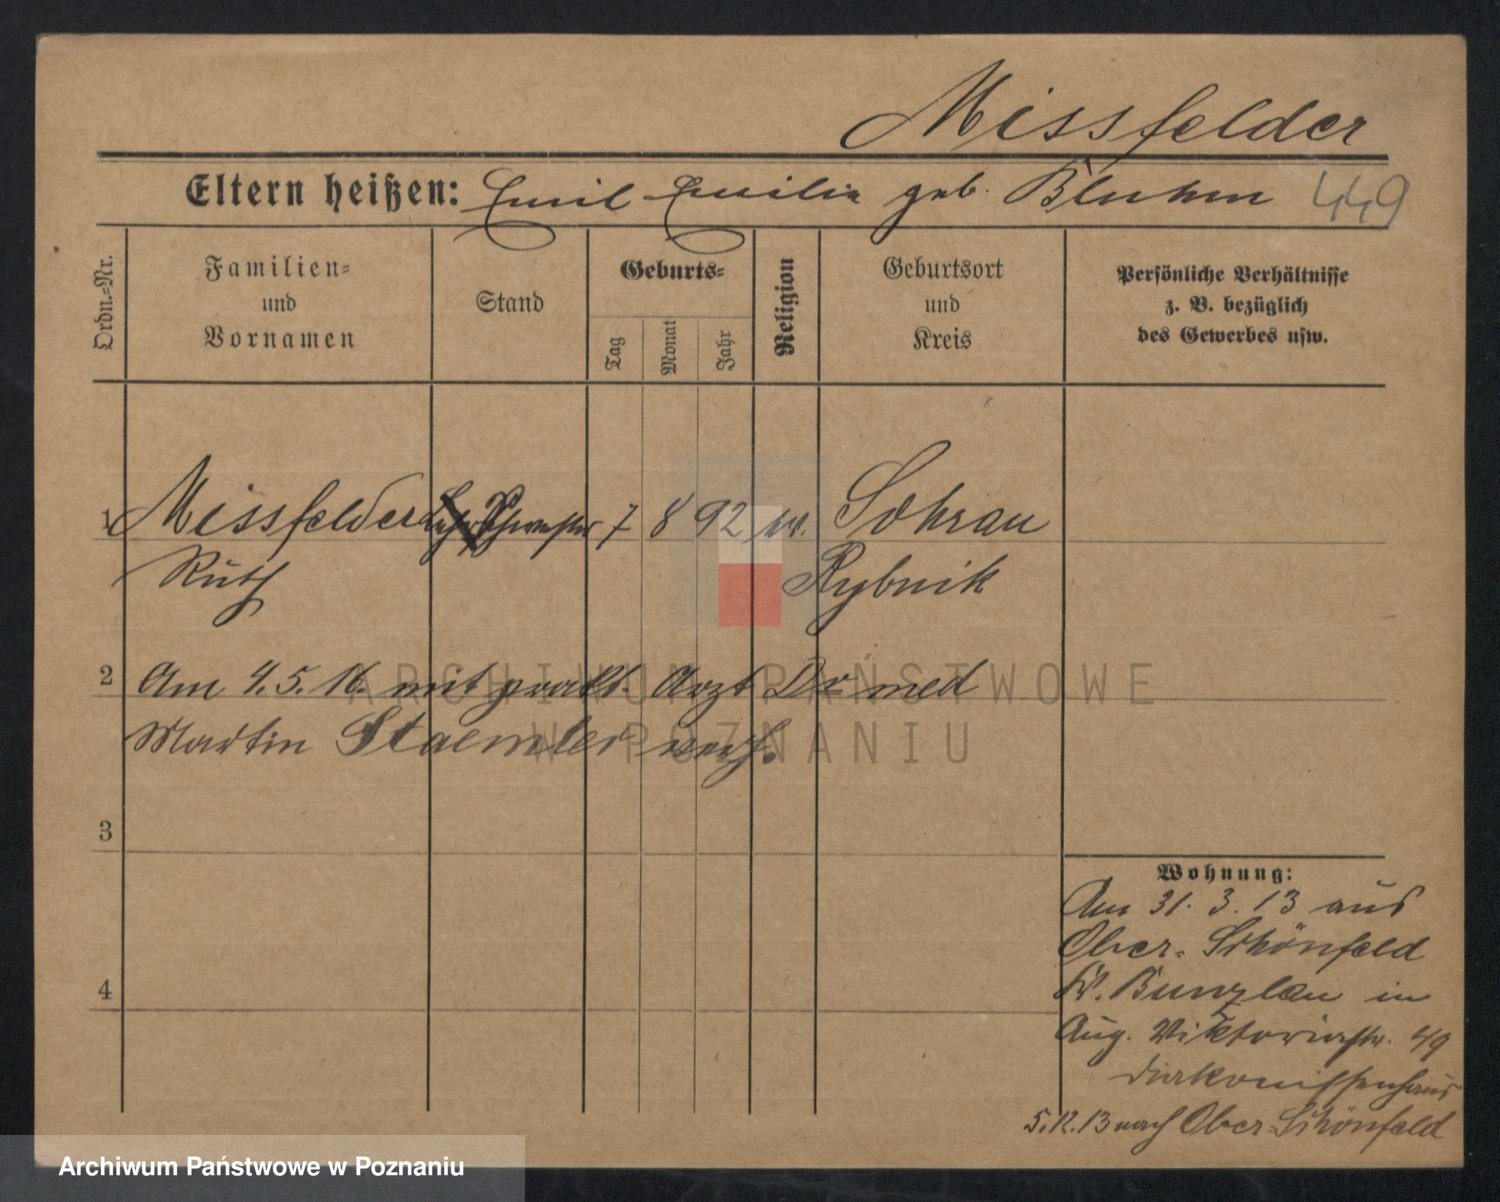 Missfelder
Eltern heißen: Emil Emilie geb. Bluhm 449
Ordn.-Nr.
Familien-
und
Vornamen
Stand
Geburts-
Tag
Monat
Jahr
Religion
Geburtsort
und
Kreis
Persönliche Verhältnisse
z. B. bezüglich
des Gewerbes usw.
1 Missfelder Schwester 7 8 92 ev. Sohrau
Ruth Rybnik
2 Am 4.5.16. mit prakt. Arzt Dr med
Martin Staemler verh.
3
4
Wohnung:
Am 31.3.13 aus
Ober-Schönfeld
Kr. Bunzlau in
Aug. Viktoriastr. 49
Diakonissenhaus
5.12.13 nach Ober-Schönfeld
ARCHIWUM PAŃSTWOWE
W POZNANIU
Archiwum Państwowe w Poznaniu